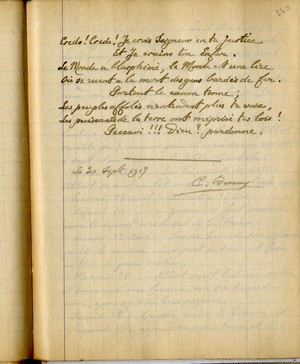 240
Credo! Credo! Je crois Seigneur en ta justice
Et Je crains ton Enfer.
Le Monde a blasphémé, le Monde est une lice
Où se ruent à la mort des gens bardés de fer.
Partout le canon tonne;
Les peuples affolés n'entendent plus ta voix,
Les puissants de la terre ont méprisé tes lois!
Peccavi!!! Dieu? pardonne.
Le 20 Sept. 1917
C.